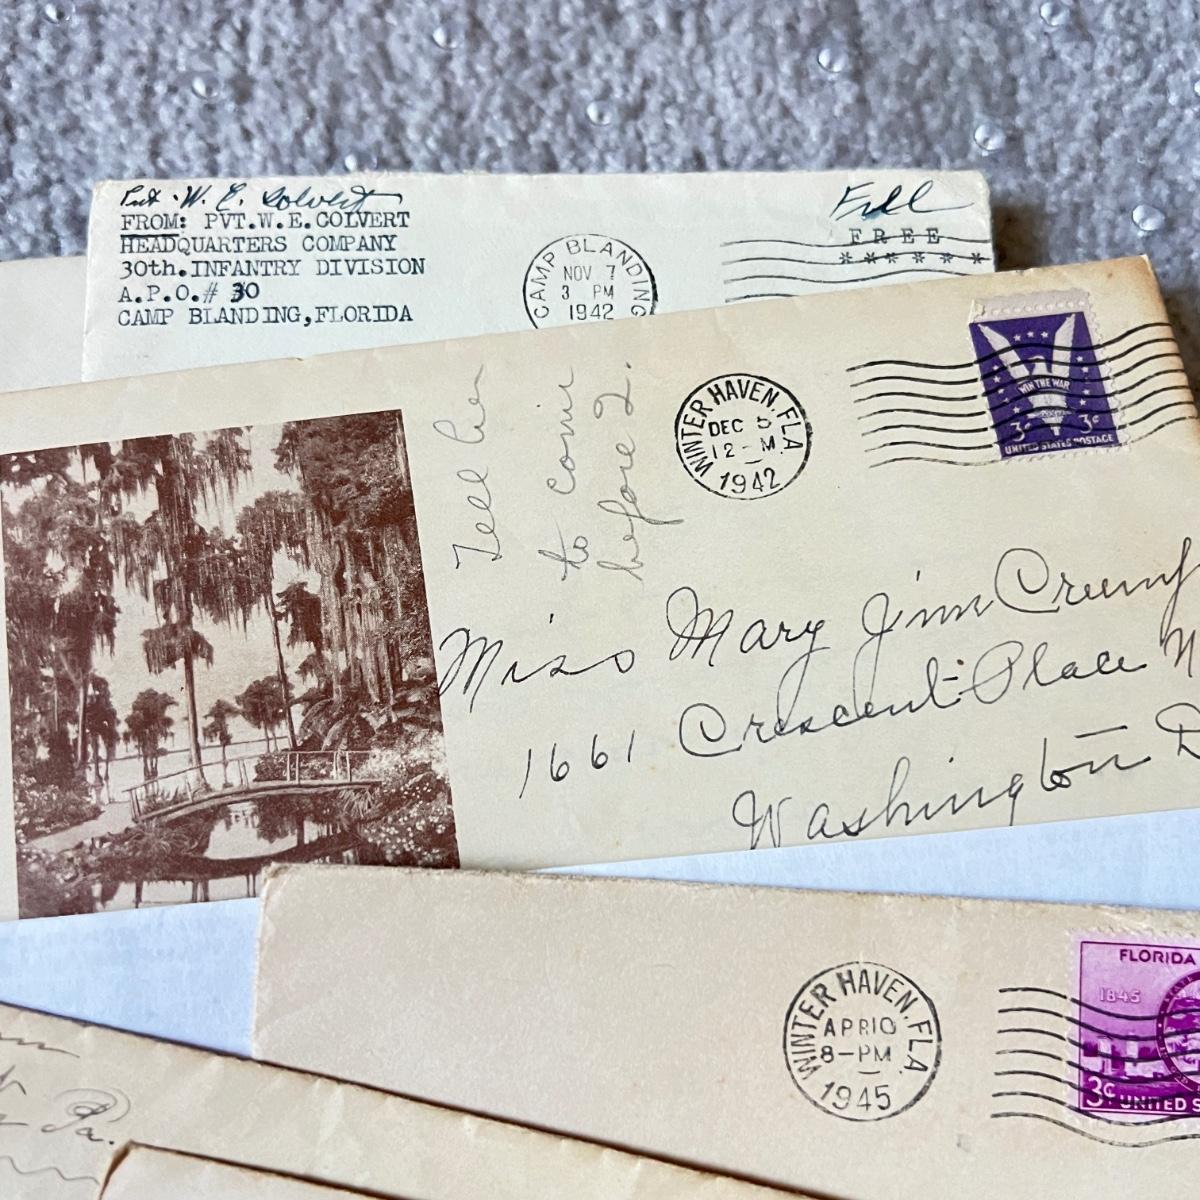 Pvt. W. E. Colvert
FROM: PVT.W.E.COLVERT
HEADQUARTERS COMPANY
30th.INFANTRY DIVISION
A.P.O.# 30
CAMP BLANDING,FLORIDA
CAMP BLANDING
NOV 7
3 PM
1942
FREE
******
Tell her
to come
before 2.
WINTER HAVEN, FLA.
DEC 5
12-M
1942
WIN THE WAR
3¢ 3¢
UNITED STATES POSTAGE
Miss Mary Jim
1661 Crescent Place N
Washington D
WINTER HAVEN, FLA.
APR 10
8-PM
1945
FLORIDA
1845
3¢ UNITED S
Pa.